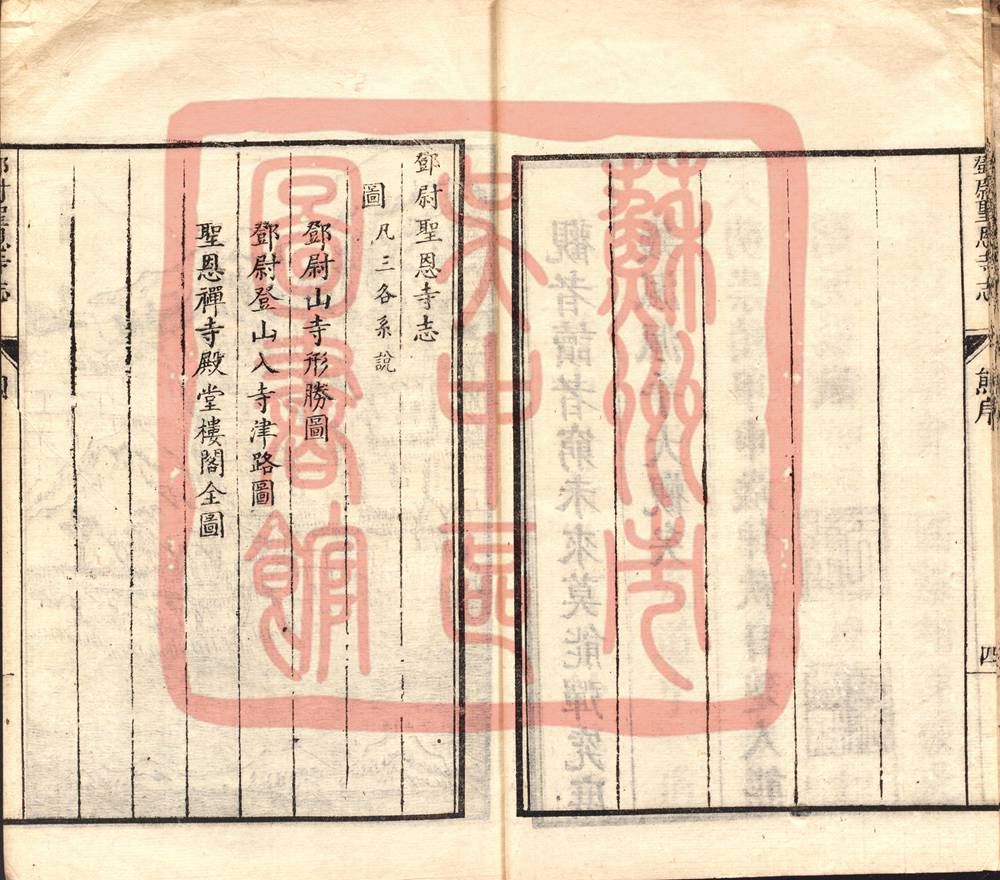 鄧尉聖恩寺志
熊序
四
鄧尉聖恩寺志
圖 凡三各系說
鄧尉山寺形勝圖
鄧尉登山入寺津路圖
聖恩禪寺殿堂樓閣全圖
蘇州市
吳中區
圖書館